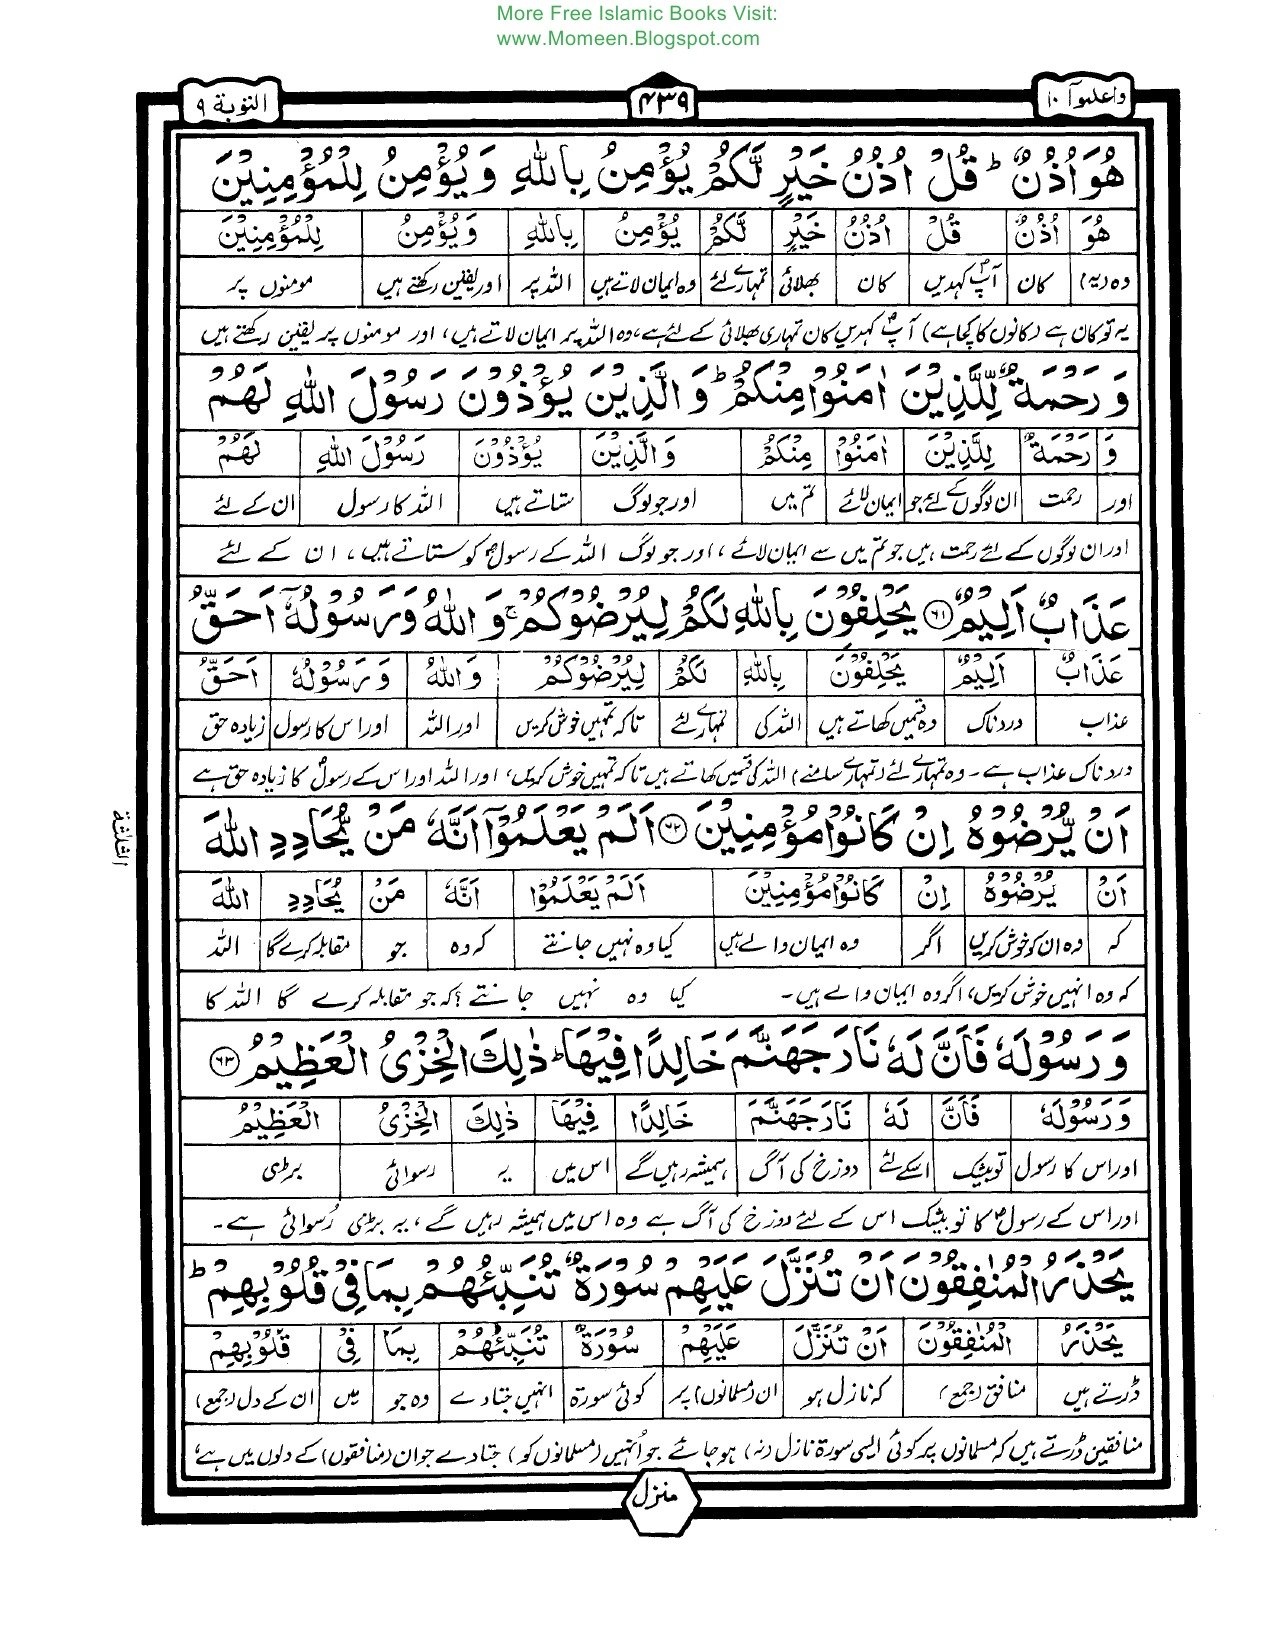 More Free Islamic Books Visit:
www.Momeen.Blogspot.com
واعلموآ ١٠
٤٣٩
التوبة ٩
هُوَ اُذُنٌ ؕ قُلْ اُذُنُ خَيْرٍ لَّكُمْ يُؤْمِنُ بِاللّٰهِ وَ يُؤْمِنُ لِلْمُؤْمِنِيْنَ
هُوَ اُذُنٌ قُلْ اُذُنُ خَيْرٍ لَّكُمْ يُؤْمِنُ بِاللّٰهِ وَيُؤْمِنُ لِلْمُؤْمِنِيْنَ
وہ (یہ) کان آپؐ کہدیں کان بھلائی تمہارے لئے وہ ایمان لاتے ہیں اللہ پر اور یقین رکھتے ہیں مومنوں پر
یہ تو کان ہے (کانوں کا کچا ہے) آپؐ کہدیں کان تمہاری بھلائی کے لئے ہے، وہ اللہ پر ایمان لاتے ہیں، اور مومنوں پر یقین رکھتے ہیں
وَ رَحْمَةٌ لِّلَّذِيْنَ اٰمَنُوْا مِنْكُمْ ؕ وَ الَّذِيْنَ يُؤْذُوْنَ رَسُوْلَ اللّٰهِ لَهُمْ
وَ رَحْمَةٌ لِّلَّذِيْنَ اٰمَنُوْا مِنْكُمْ وَ الَّذِيْنَ يُؤْذُوْنَ رَسُوْلَ اللّٰهِ لَهُمْ
اور رحمت ان لوگوں کے لئے جو ایمان لائے تم میں اور جو لوگ ستاتے ہیں اللہ کا رسول ان کے لئے
اور ان لوگوں کے لئے رحمت ہیں جو تم میں سے ایمان لائے، اور جو لوگ اللہ کے رسولؐ کو ستاتے ہیں، ان کے لئے
عَذَابٌ اَلِيْمٌ ۝٦١ يَحْلِفُوْنَ بِاللّٰهِ لَكُمْ لِيُرْضُوْكُمْ ۚ وَ اللّٰهُ وَ رَسُوْلُهٗۤ اَحَقُّ
عَذَابٌ اَلِيْمٌ يَحْلِفُوْنَ بِاللّٰهِ لَكُمْ لِيُرْضُوْكُمْ وَ اللّٰهُ وَ رَسُوْلُهٗ اَحَقُّ
عذاب دردناک وہ قسمیں کھاتے ہیں اللہ کی تمہارے لئے تاکہ تمہیں خوش کریں اور اللہ اور اس کا رسول زیادہ حق
دردناک عذاب ہے۔ وہ تمہارے لئے (تمہارے سامنے) اللہ کی قسمیں کھاتے ہیں تاکہ تمہیں خوش کریں، اور اللہ اور اس کے رسولؐ کا زیادہ حق ہے
اَنْ يُّرْضُوْهُ اِنْ كَانُوْا مُؤْمِنِيْنَ ۝٦٢ اَلَمْ يَعْلَمُوْۤا اَنَّهٗ مَنْ يُّحَادِدِ اللّٰهَ
اَنْ يُرْضُوْهُ اِنْ كَانُوْا مُؤْمِنِيْنَ اَلَمْ يَعْلَمُوْا اَنَّهٗ مَنْ يُحَادِدِ اللّٰهَ
کہ وہ ان کو خوش کریں اگر وہ ایمان والے ہیں کیا وہ نہیں جانتے کہ وہ جو مقابلہ کرے گا اللہ
کہ وہ انہیں خوش کریں، اگر وہ ایمان والے ہیں۔ کیا وہ نہیں جانتے؟ کہ جو مقابلہ کرے گا اللہ کا
الثلثة
وَ رَسُوْلَهٗ فَاَنَّ لَهٗ نَارَ جَهَنَّمَ خَالِدًا فِيْهَا ؕ ذٰلِكَ الْخِزْىُ الْعَظِيْمُ ۝٦٣
وَ رَسُوْلَهٗ فَاَنَّ لَهٗ نَارَ جَهَنَّمَ خَالِدًا فِيْهَا ذٰلِكَ الْخِزْىُ الْعَظِيْمُ
اور اس کا رسول تو بیشک اسکے لئے دوزخ کی آگ ہمیشہ رہیں گے اس میں یہ رسوائی بڑی
اور اس کے رسولؐ کا تو بیشک اس کے لئے دوزخ کی آگ ہے وہ اس میں ہمیشہ رہیں گے، یہ بڑی رُسوائی ہے۔
يَحْذَرُ الْمُنٰفِقُوْنَ اَنْ تُنَزَّلَ عَلَيْهِمْ سُوْرَةٌ تُنَبِّئُهُمْ بِمَا فِيْ قُلُوْبِهِمْ ؕ
يَحْذَرُ الْمُنٰفِقُوْنَ اَنْ تُنَزَّلَ عَلَيْهِمْ سُوْرَةٌ تُنَبِّئُهُمْ بِمَا فِيْ قُلُوْبِهِمْ
ڈرتے ہیں منافق (جمع) کہ نازل ہو ان (مسلمانوں) پر کوئی سورۃ انہیں جتا دے وہ جو میں ان کے دل (جمع)
منافقین ڈرتے ہیں کہ مسلمانوں پر کوئی ایسی سورۃ نازل (نہ) ہو جائے جو اُنہیں (مسلمانوں کو) جتا دے جو ان (منافقوں) کے دلوں میں ہے،
منزل